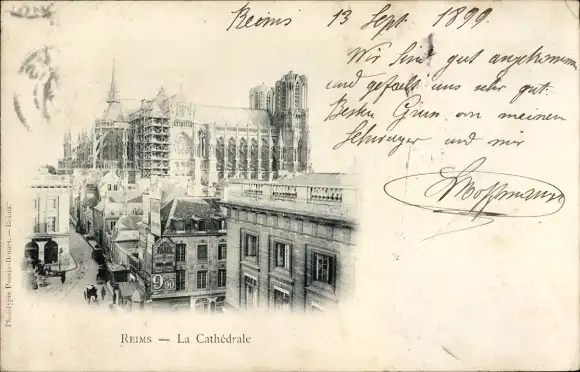 Reims 13 Sept 1899
Wir sind gut angekommen
und gefällt uns sehr gut.
Besten Gruss an meinen
Schwager und mir
Hoffmann
9 80
Reims — La Cathédrale
Phototypie — Reims.